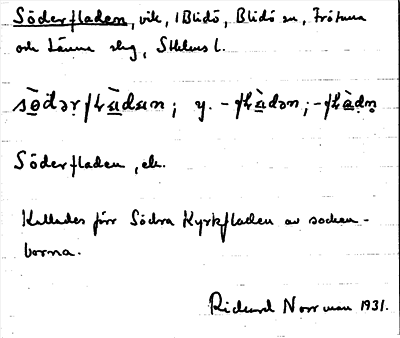 Söderfladen, vik, i Blidö, Blidö sn, Frötuna
och Länna slg, Sthlms l.
Söderfladen, ek.
Kallades förr Södra Kyrkfladen av socken-
borna.
Rickard Norrman 1931.